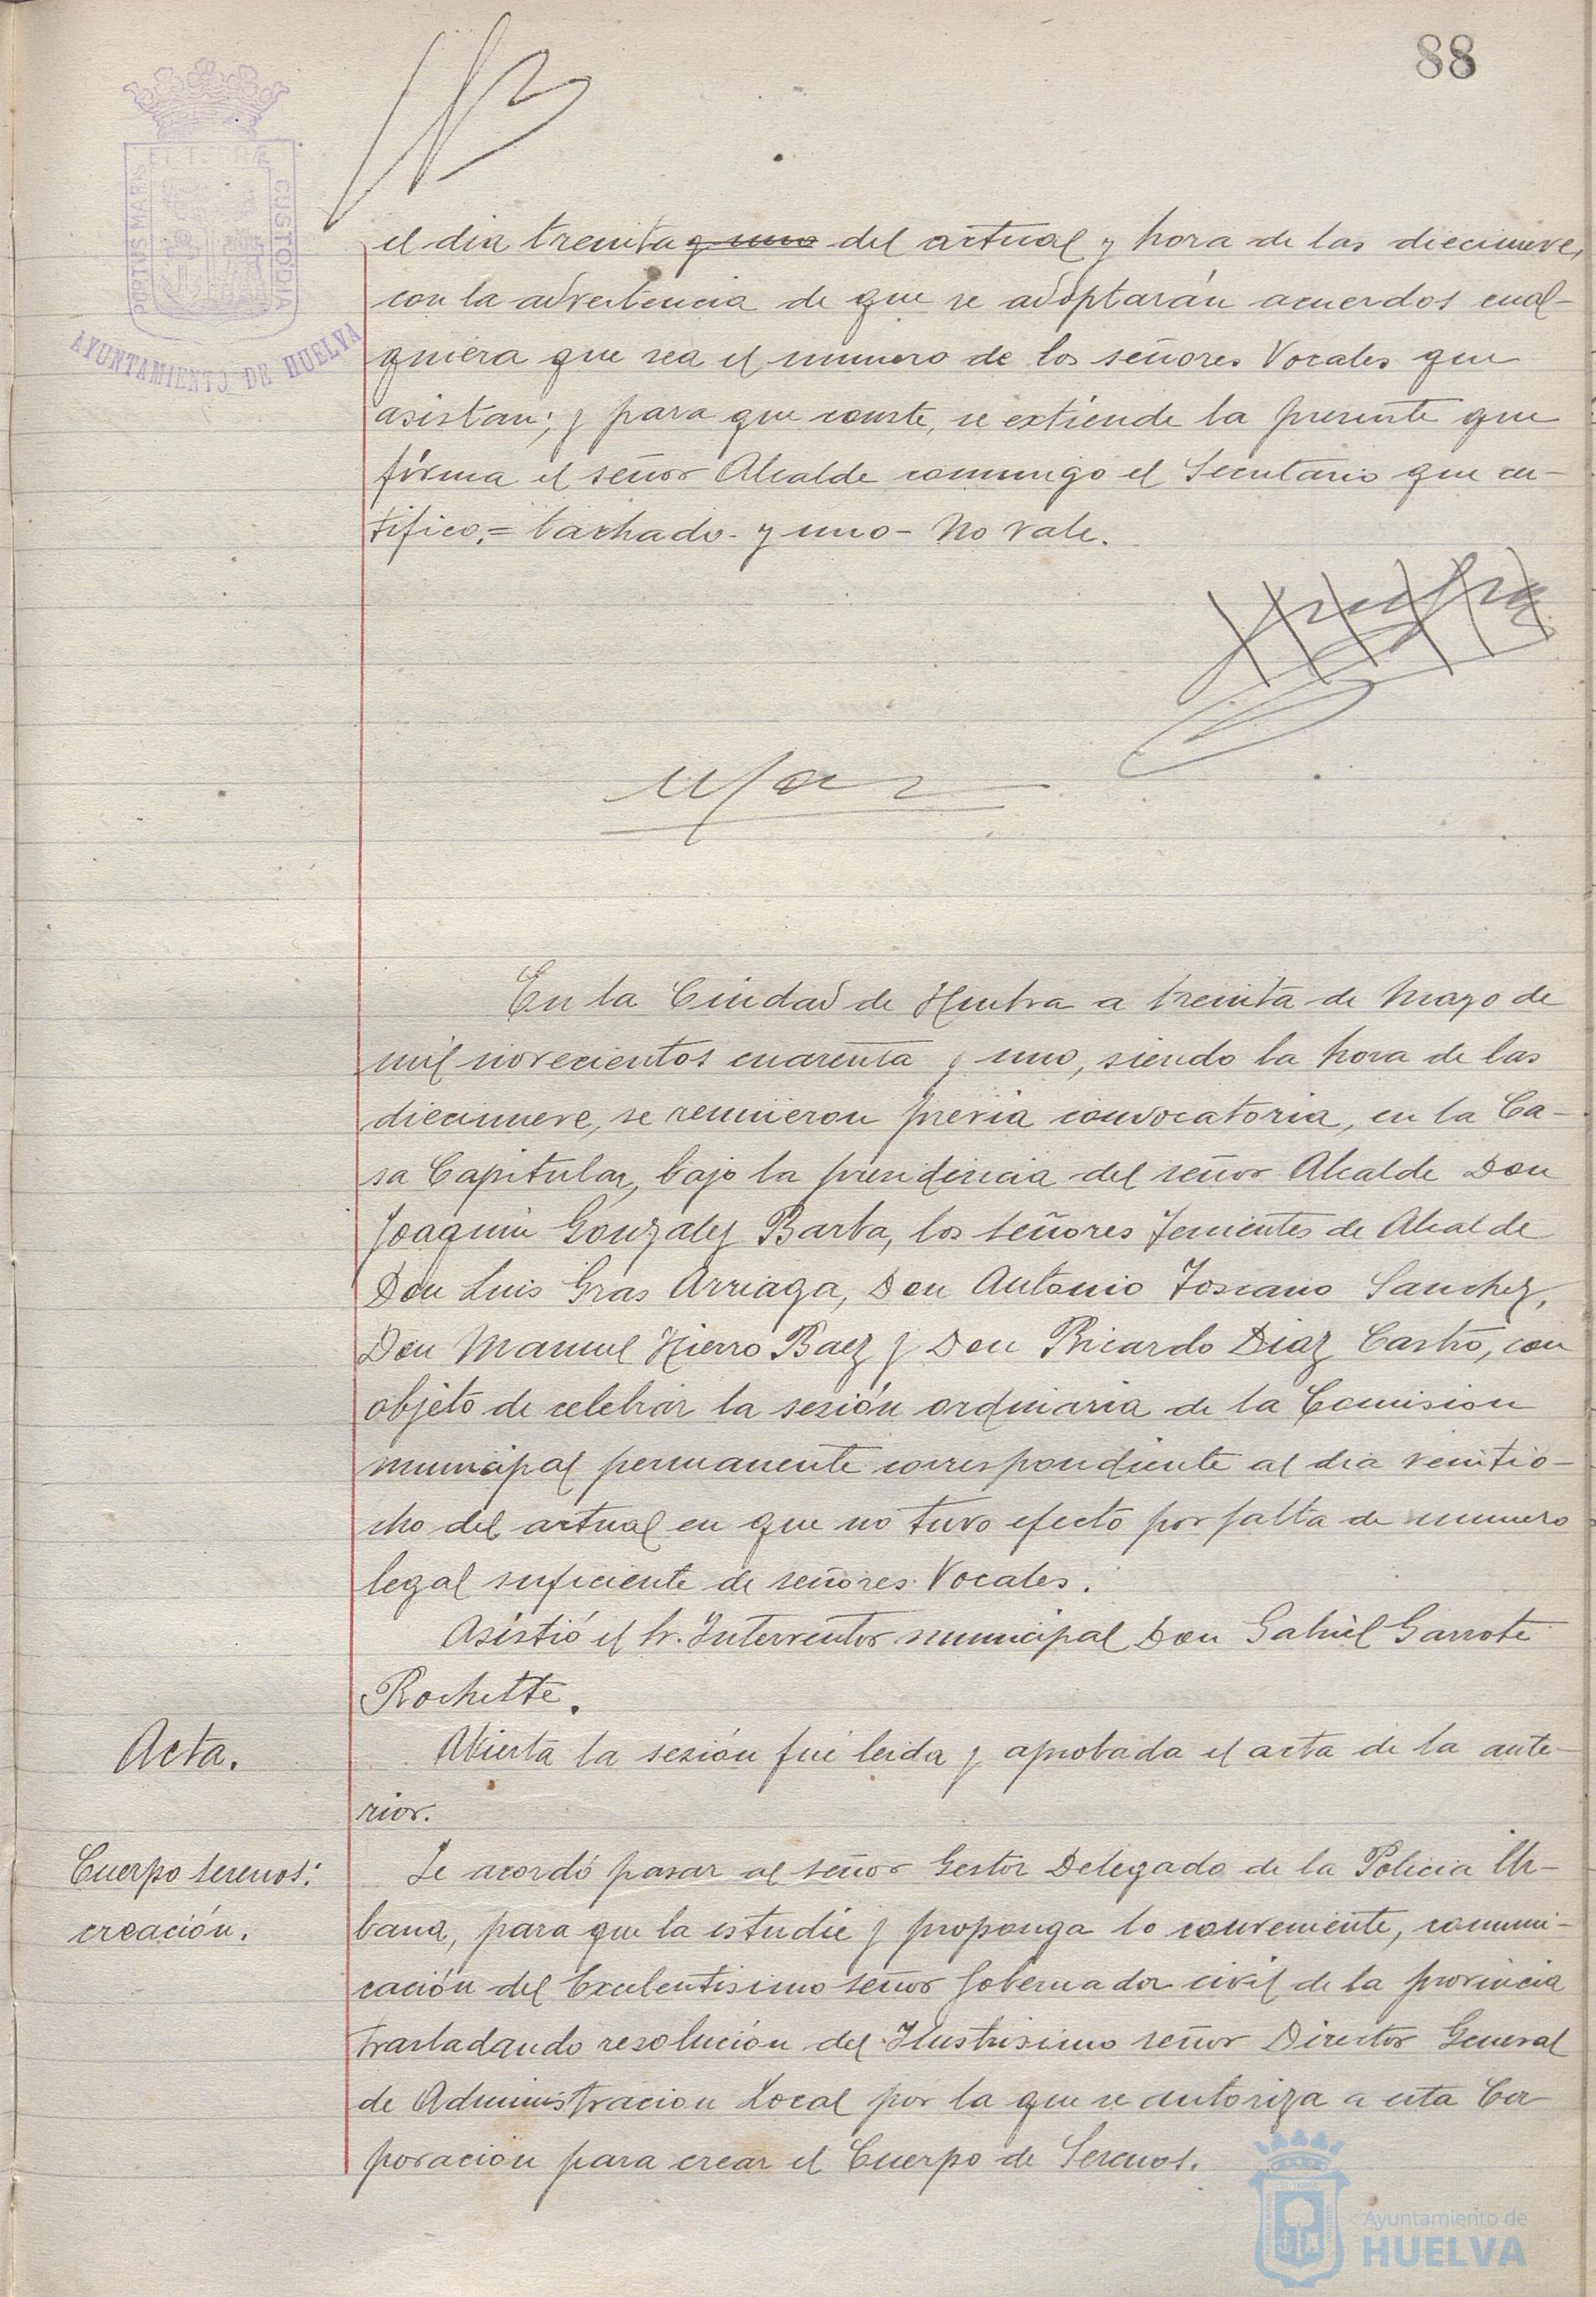 88
PORTUS MARIS
CUSTODIA
AYUNTAMIENTO DE HUELVA
el dia treinta y uno del actual y hora de las diecinueve,
con la advertencia de que se adoptarán acuerdos cual-
quiera que sea el numero de los señores Vocales que
asistan; y para que conste, se extiende la presente que
firma el señor Alcalde conmigo el Secretario que cer-
tifico.= tachado - y uno - No vale.
En la Ciudad de Huelva a treinta de Mayo de
mil novecientos cuarenta y uno, siendo la hora de las
diecinueve, se reunieron previa convocatoria, en la Ca-
sa Capitular, bajo la presidencia del señor Alcalde Don
Joaquin Gonzalez Barba, los señores Tenientes de Alcalde
Don Luis Gras Arriaga, Don Antonio Toscano Sanchez,
Don Manuel Hierro Baez y Don Ricardo Diaz Castro, con
objeto de celebrar la sesión ordinaria de la Comision
municipal permanente correspondiente al dia veintio-
cho del actual en que no tuvo efecto por falta de numero
legal suficiente de señores Vocales.
Asistió el Sr. Interventor municipal Don Gabriel Garrote
Rochette.
Acta.
Abierta la sesión fué leida y aprobada el acta de la ante-
rior.
Cuerpo serenos:
creación.
Se acordó pasar al señor Gestor Delegado de la Policia Ur-
bana, para que la estudie y proponga lo conveniente, comuni-
cación del Excelentisimo señor Gobernador civil de la provincia
trasladando resolución del Ilustrisimo señor Director General
de Administracion Local por la que se autoriza a esta Cor
poracion para crear el Cuerpo de Serenos.
Ayuntamiento de
HUELVA